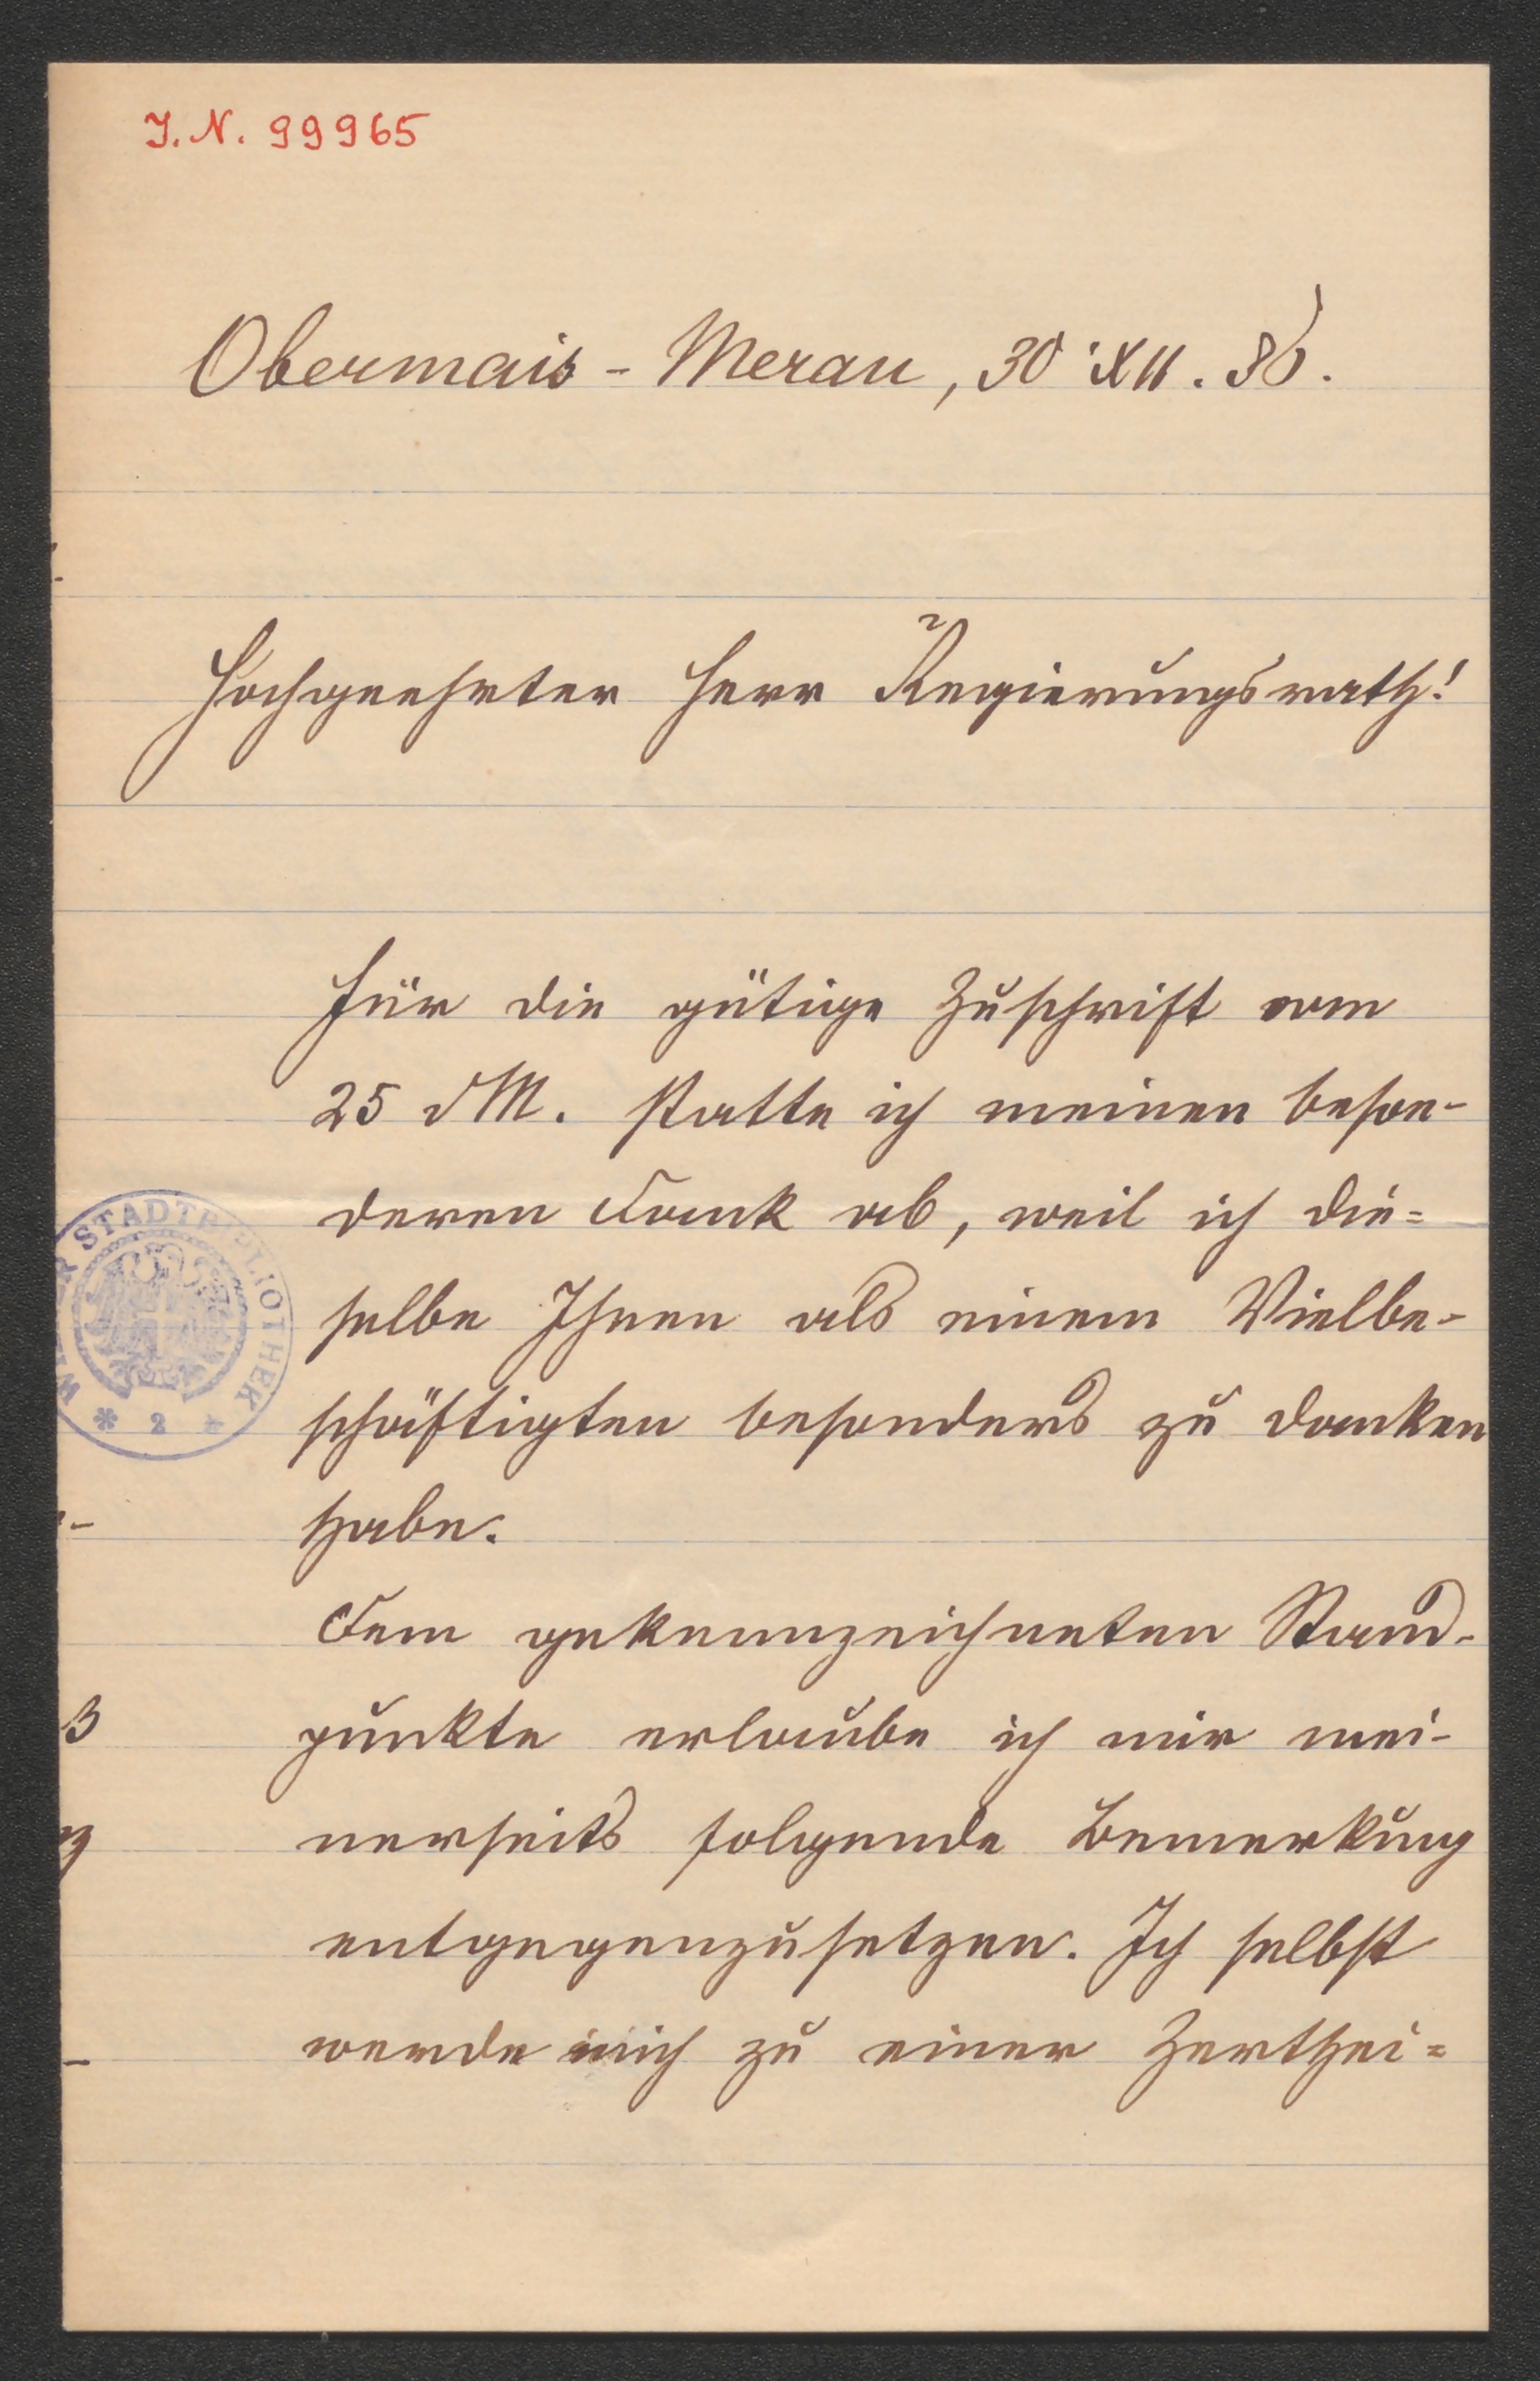 J. N. 99965
Obermais - Meran, 30 XII. 86.
Hochgeehrter Herr Regierungsrath!
Für die gütige Zuschrift vom
25 dM. statte ich meinen beson-
deren Dank ab, weil ich die=
selbe Ihnen als einem Vielbe-
schäftigten besonders zu danken
habe.
Dem gekennzeichneten Stand-
punkte erlaube ich mir mei-
nerseits folgende Bemerkung
entgegenzusetzen. Ich selbst
werde mich zu einer Zerthei=
WIENER STADTBIBLIOTHEK
* 2 *